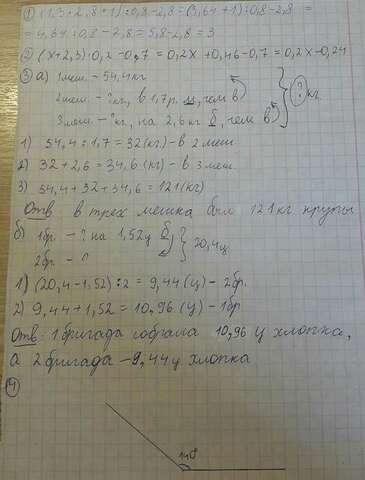 ① (1,3 · 2,8 + 1) : 0,8 - 2,8 = (3,64 + 1) : 0,8 - 2,8 =
= 4,64 : 0,8 - 2,8 = 5,8 - 2,8 = 3
② (x + 2,3) · 0,2 - 0,7 = 0,2x + 0,46 - 0,7 = 0,2x - 0,24
③ а) 1 меш. - 54,4 кг
2 меш. - ? кг, в 1,7 р. м, чем в
3 меш. - ? кг, на 2,6 кг б, чем в
? кг.
1) 54,4 : 1,7 = 32 (кг) - в 2 меш
2) 32 + 2,6 = 34,6 (кг) - в 3 меш.
3) 54,4 + 32 + 34,6 = 121 (кг)
Отв: в трех мешка был 121 кг крупы
б) 1 бр. - ? на 1,52 ц б
2 бр. - ?
20,4 ц.
1) (20,4 - 1,52) : 2 = 9,44 (ц) - 2 бр.
2) 9,44 + 1,52 = 10,96 (ц) - 1 бр
Отв: 1 бригада собрала 10,96 ц хлопка,
а 2 бригада - 9,44 ц хлопка
④
140°